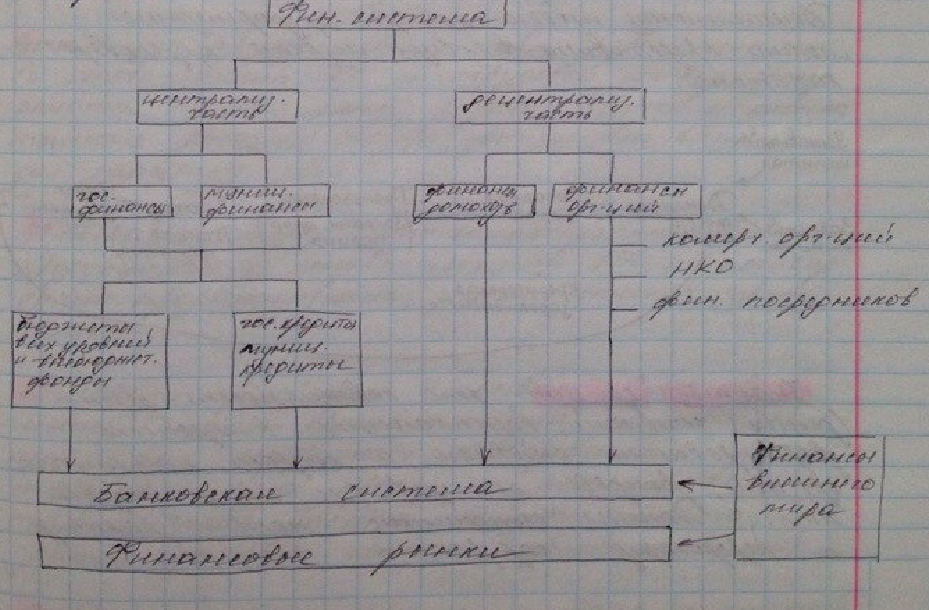 Фин. система
централиз.
часть
децентрализ.
часть
гос.
финансы
муниц.
финансы
финансы
домохоз.
финансы
орг-ций
комерч. орг-ций
НКО
фин. посредников
бюджеты
всех уровней
и внебюджет.
фонды
гос. кредиты
муниц.
кредиты
Финансы
внешнего
мира
Банковская система
Финансовые рынки